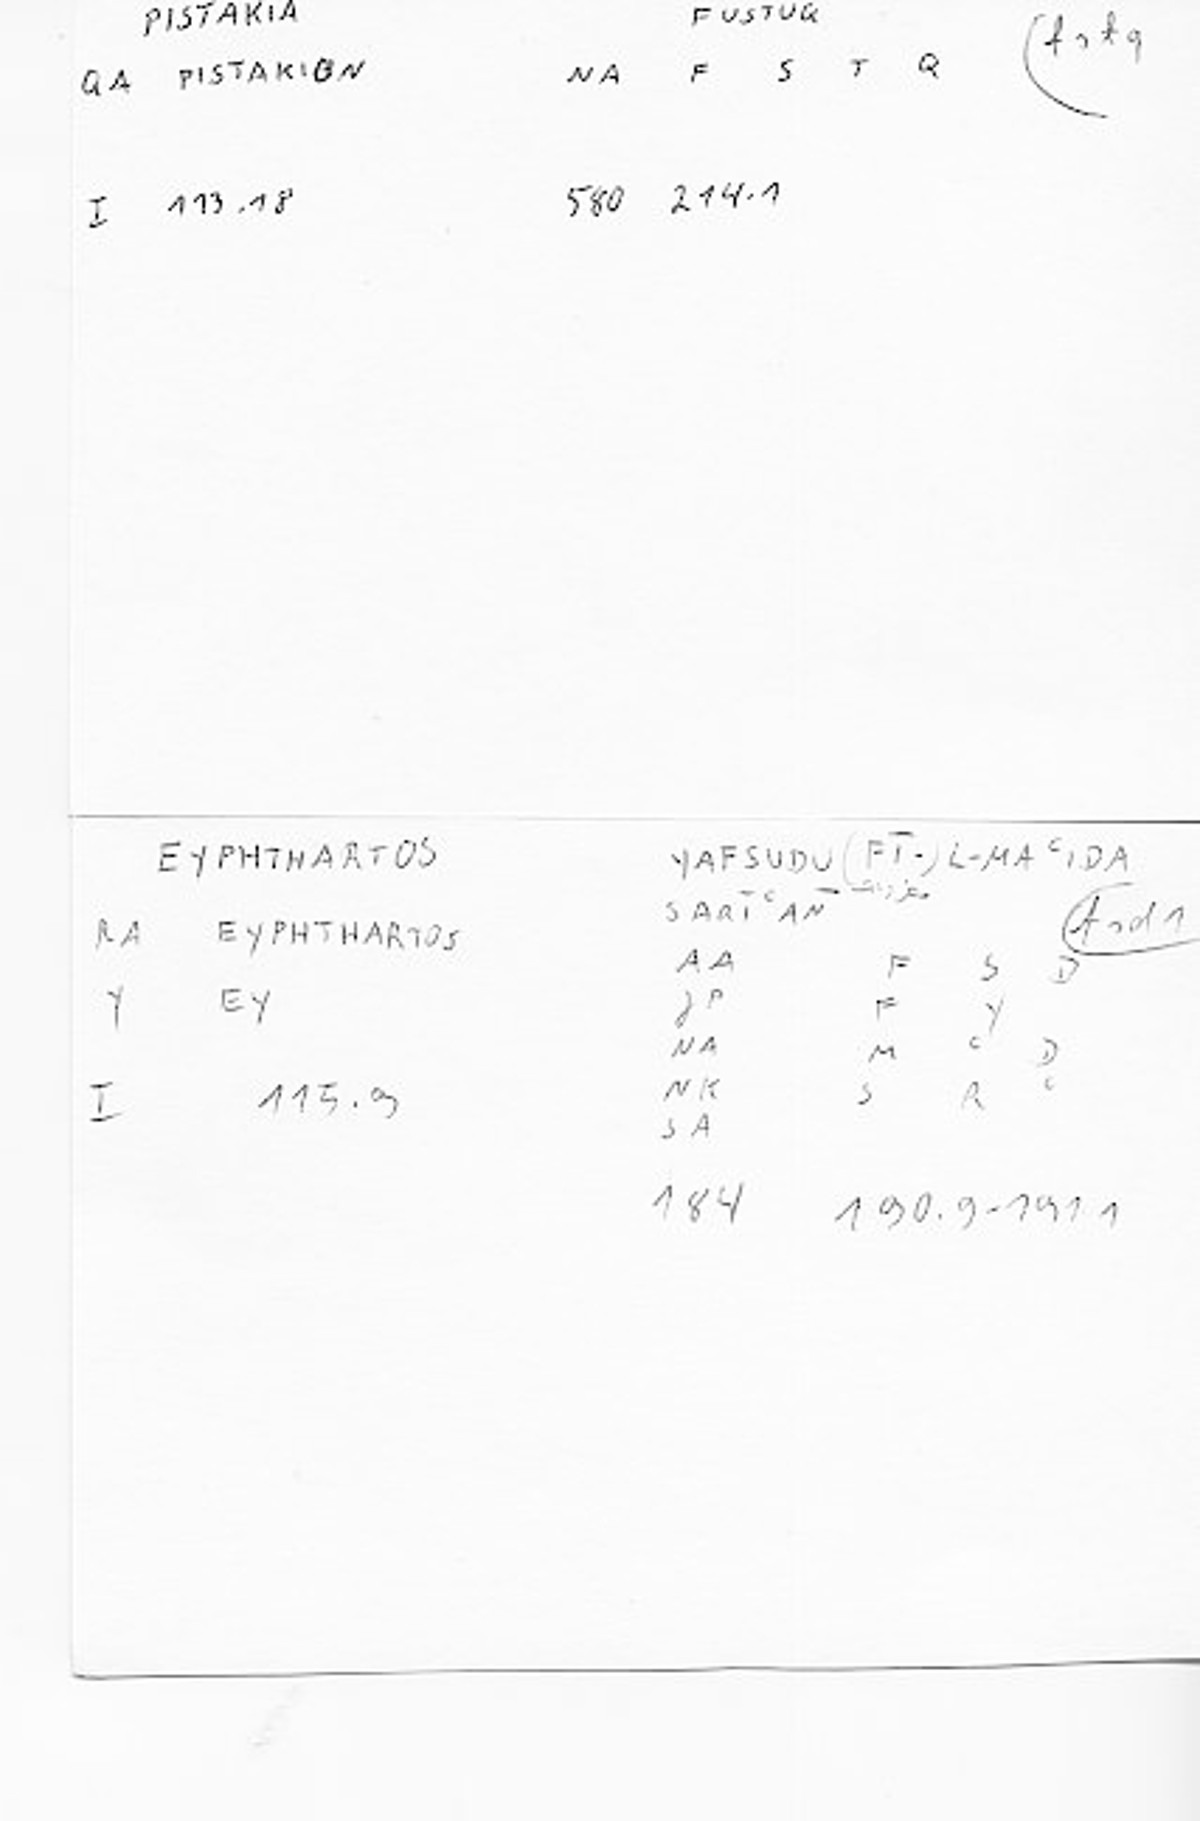 PISTAKIA FUSTUQ
QA PISTAKION NA F S T Q (fstq
I 113.18 580 214.1
EYPHTHARTOS YAFSUDU (FĪ-) L-MAʿIDA
SARĪʿAN
fsd1
RA EYPHTHARTOS AA F S D
Y EY JP F Y
NA M ʿ D
I 115.9 NK S R ʿ
SA
184 190.9-191.1